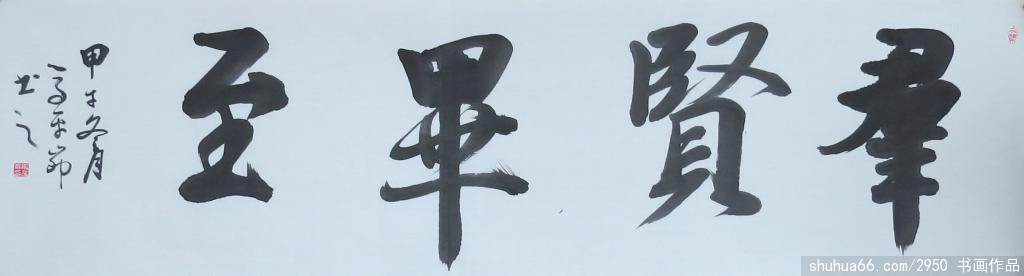 羣賢畢至
甲午冬月
書之
shuhua66.com/2950 书画作品